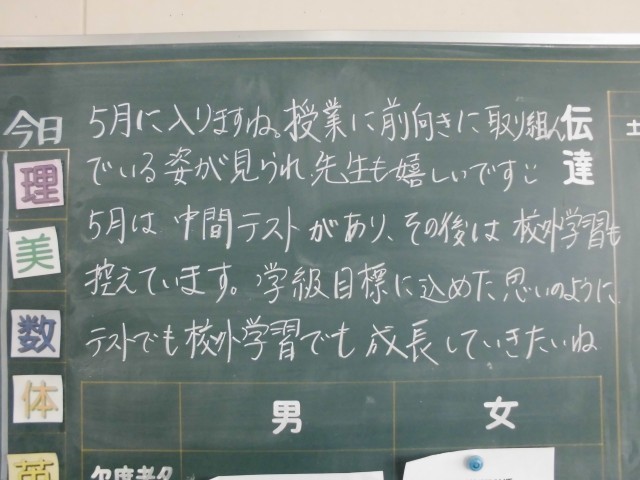 今日
理
美
数
体
英
5月に入りますね。授業に前向きに取り組ん
でいる姿が見られ、先生も嬉しいです。
5月は中間テストがあり、その後は校外学習も
控えています。学級目標に込めた思いのように
テストでも校外学習でも成長していきたいね
伝達
土
男
女
欠席者名